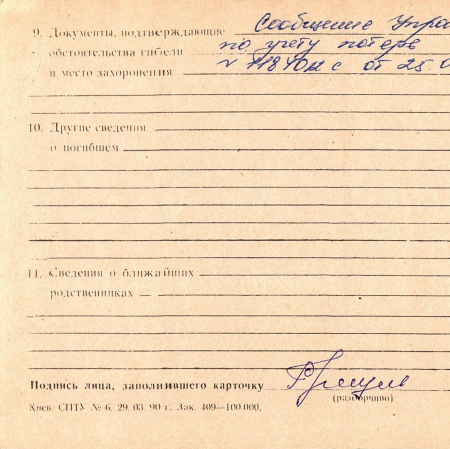 9. Документы, подтверждающие Сообщение Упра
обстоятельства гибели по учету потерь
и место захоронения от 25.0
10. Другие сведения
о погибшем
11. Сведения о ближайших
родственниках
Подпись лица, заполнившего карточку
(разборчиво)
Киев. СПТУ № 6. 29. 03. 90 г. Зак. 409—100.000.